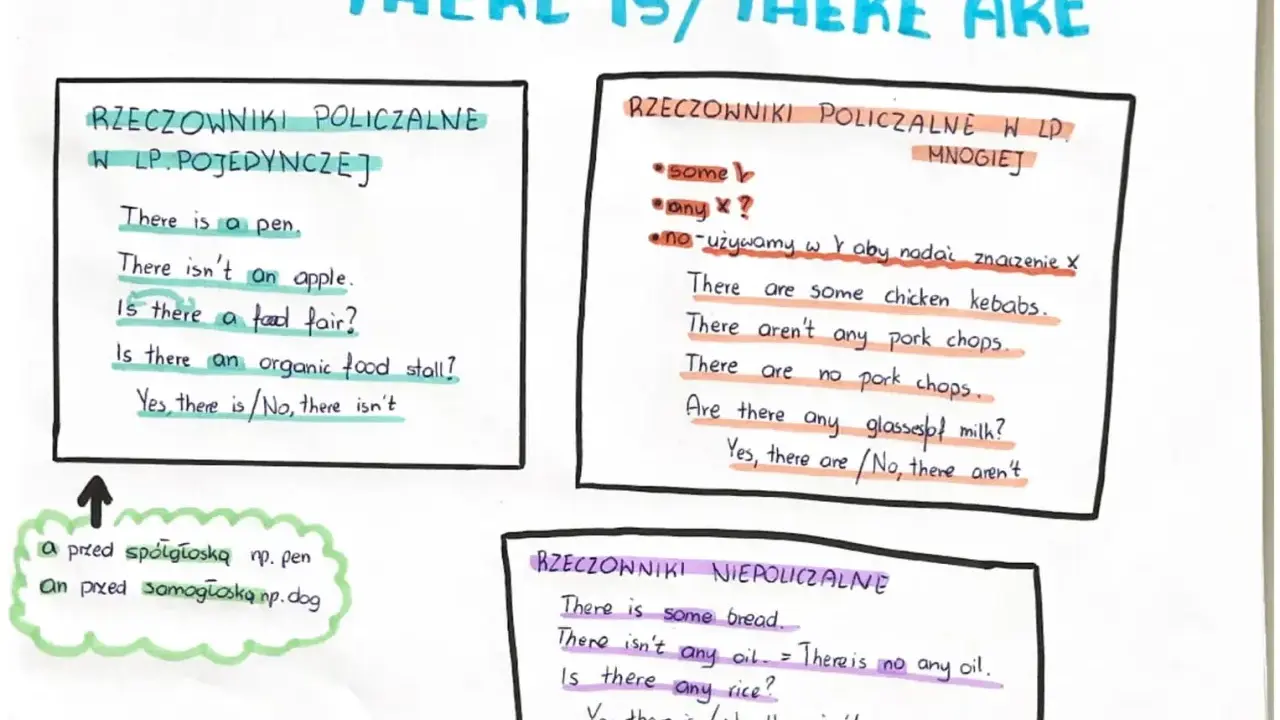 THERE IS/THERE ARE
RZECZOWNIKI POLICZALNE
W LP.POJEDYNCZEJ
There is a pen.
There isn't an apple.
Is there a food fair?
Is there an organic food stall?
Yes, there is/No, there isn't
a przed spółgłoską np. pen
an przed samogłoską np. dog
RZECZOWNIKI POLICZALNE W LP.
MNOGIEJ
• some
• any x ?
• no - używamy w aby nadać znaczenie x
There are some chicken kebabs.
There aren't any pork chops.
There are no pork chops.
Are there any glasses of milk?
Yes, there are /No, there aren't
RZECZOWNIKI NIEPOLICZALNE
There is some bread.
There isn't any oil. = There is no any oil.
Is there any rice?